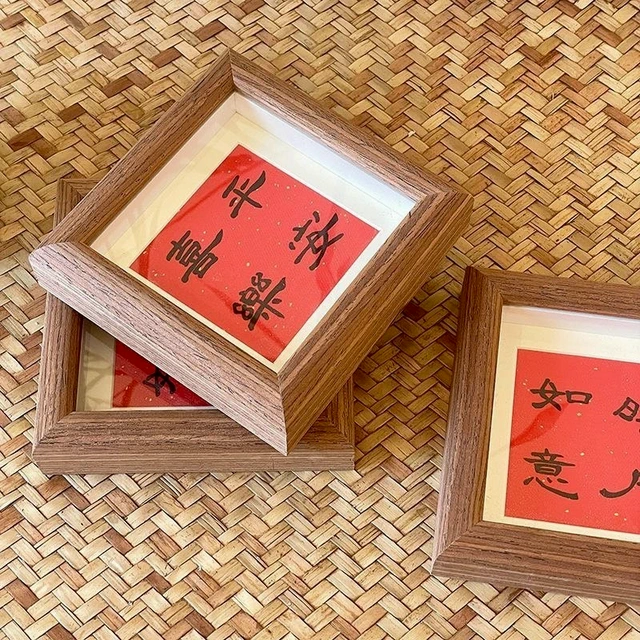 平安
喜樂
如意